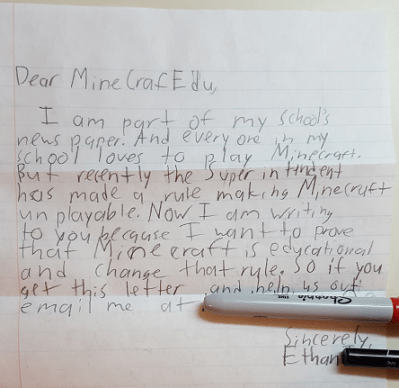 Dear MineCrafEdu,
I am part of my school's
news paper. And every one in my
school loves to play Minecraft.
But recently the Super in tendent
has made a rule making Minecraft
un playable. Now I am writing
to you because I want to prove
that Minecraft is educational
and change that rule. So if you
get this letter and help us out
email me at
Sharpie
Sincerely,
Ethan